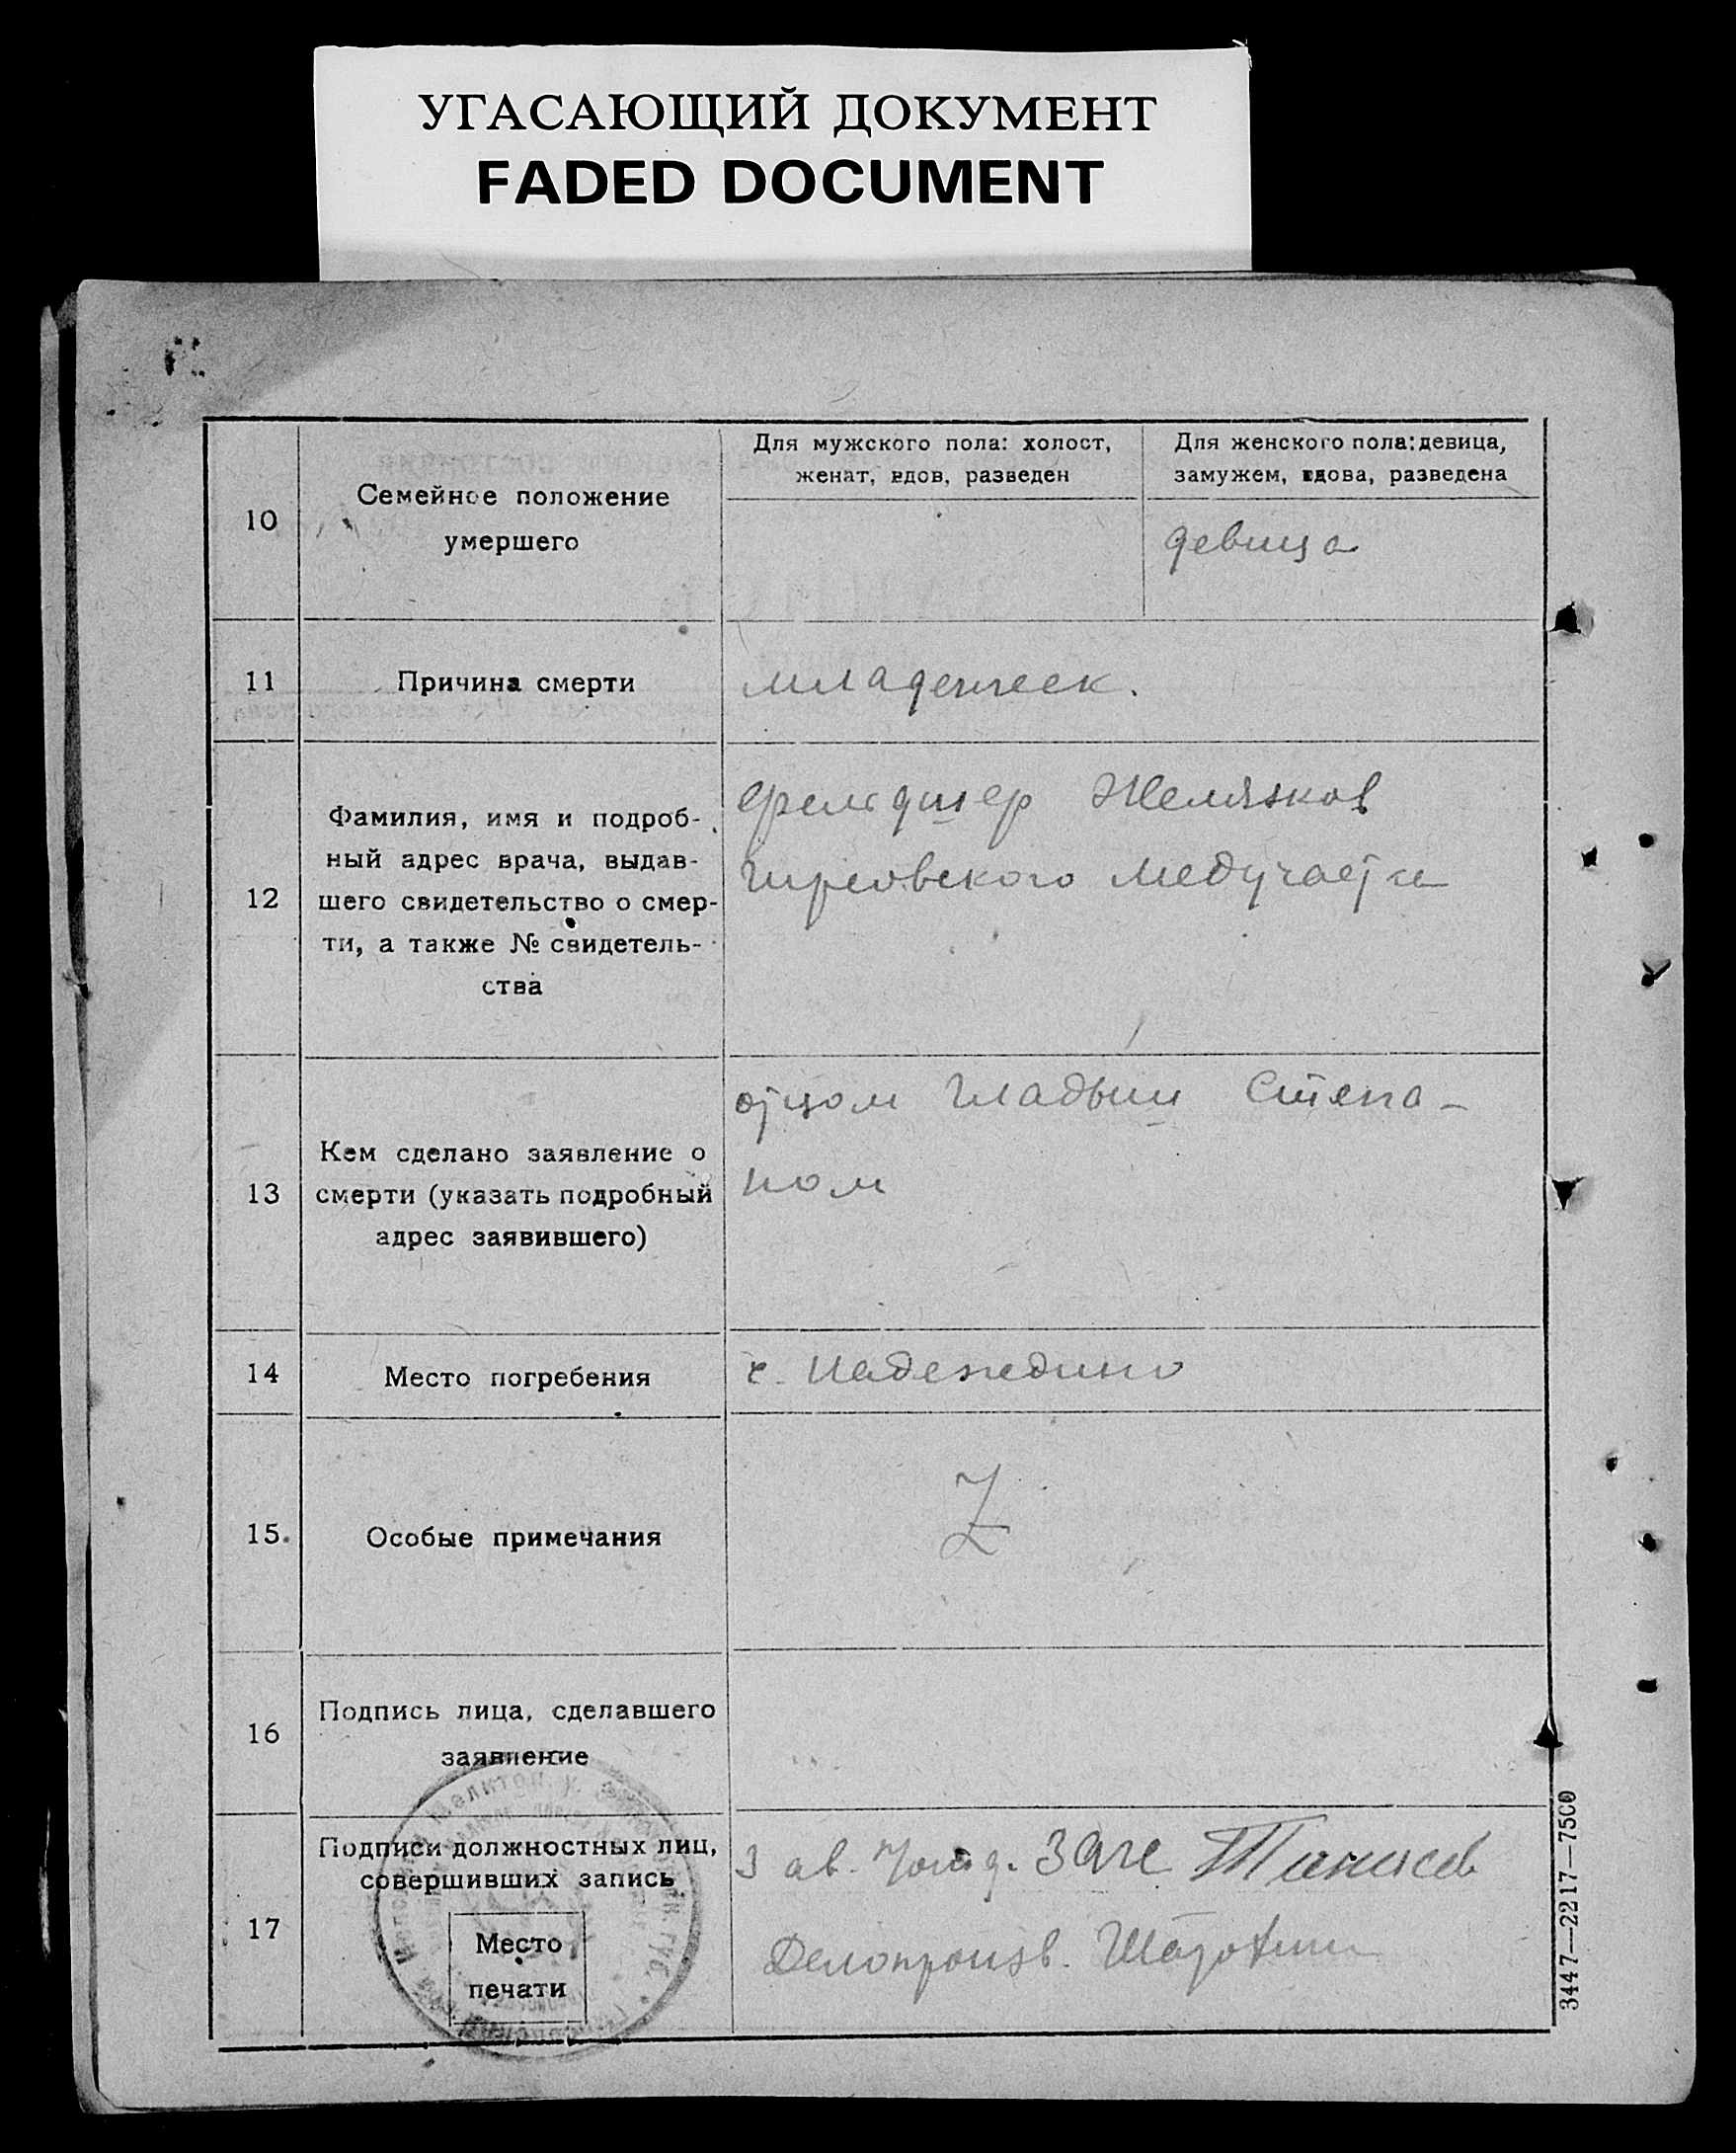 УГАСАЮЩИЙ ДОКУМЕНТ
FADED DOCUMENT
10
Семейное положение
умершего
Для мужского пола: холост,
женат, вдов, разведен
Для женского пола: девица,
замужем, вдова, разведена
девица
11
Причина смерти
младенческ.
12
Фамилия, имя и подроб-
ный адрес врача, выдав-
шего свидетельство о смер-
ти, а также № свидетель-
ства
фельдшер Желязков
медучастка
13
Кем сделано заявление о
смерти (указать подробный
адрес заявившего)
отцом Гладыш Степа-
ном
14
Место погребения
с. Надеждино
15.
Особые примечания
Z
16
Подпись лица, сделавшего
заявление
17
Подписи должностных лиц,
совершивших запись
Место
печати
Зав.
Делопроизв.
3447—2217—7500